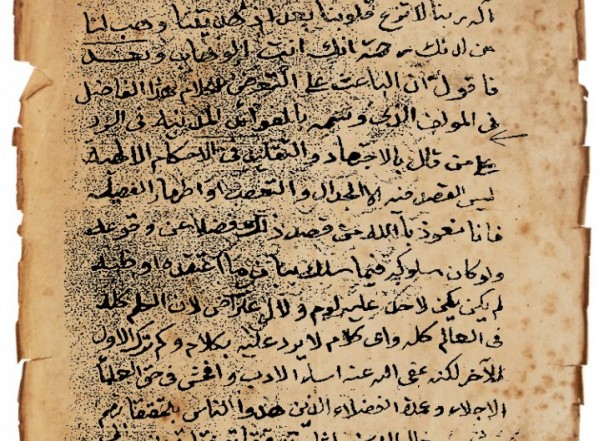 آله ربنا لا تزغ قلوبنا بعد اذ هديتنا وهب لنا
من لدنك رحمة انك انت الوهاب وبعد
فاقول ان الباعث على التعرض لكلام هذا الفاضل
في المولف الذي وسمه بالفوائد المدنية في الرد
على من قال بالاجتهاد والتقليد في الاحكام الالهية
ليس القصد منه الا الجدال والتعصب او اظهار الفضيلة
فانا نعوذ بالله من قصد ذلك فضلا عن وقوعه
ولو كان سلوكه فيما سلك في ما اعتقده وظنه
لم يكن لاحد عليه لوم ولا اعتراض لان العلم كله
في العالم كله واى كلام لا يرد عليه كلام وكم ترك الاول
للآخر لكنه عفى الله عنه اساء الادب وافحش في حق العلماء
الاجلاء وعمدة الفضلاء الذين هدوا الناس بتحقيقاتهم